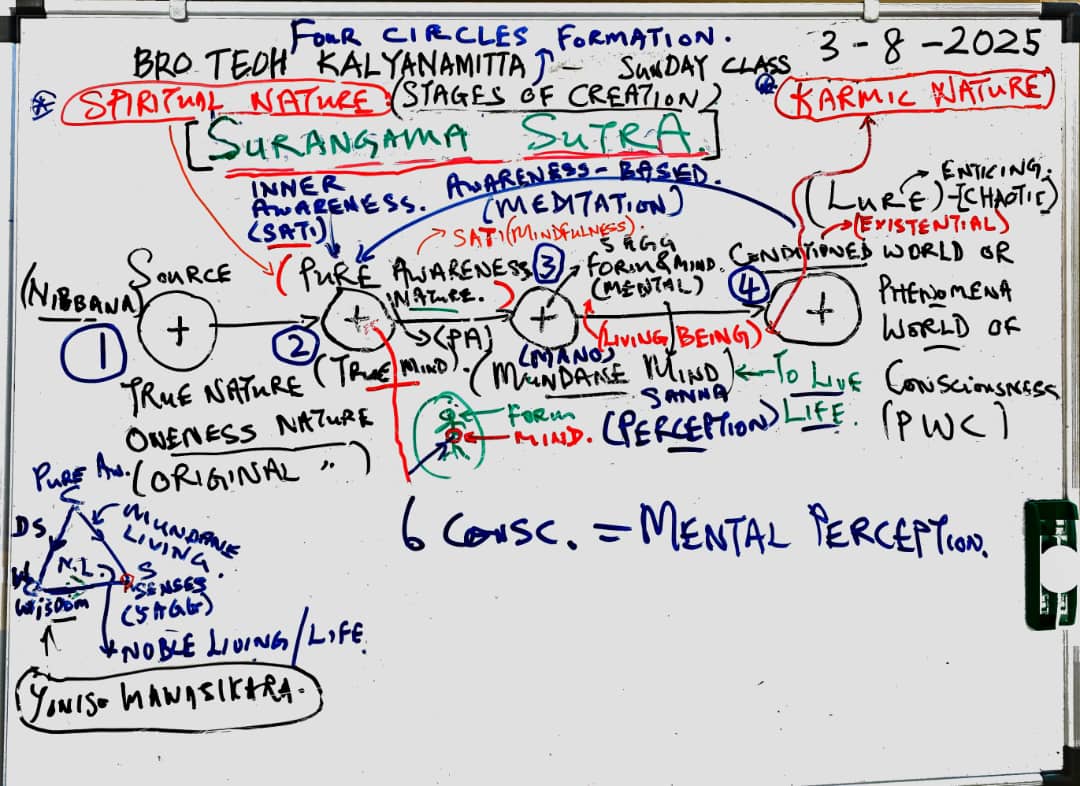 FOUR CIRCLES FORMATION.
3-8-2025
BRO TEOH KALYANAMITTA - SUNDAY CLASS
* SPIRITUAL NATURE: (STAGES OF CREATION)
* KARMIC NATURE
[SURANGAMA SUTRA.]
INNER AWARENESS. (SATI)
AWARENESS-BASED.
(MEDITATION)
(LURE)-[CHAOTIC)
ENTICING.
(EXISTENTIAL)
SATI (MINDFULNESS).
(NIBBANA)
SOURCE
(PURE AWARENESS
NATURE.)
(PA)
5 AGG
FORM & MIND.
(MENTAL)
CONDITIONED WORLD OR
PHENOMENA
WORLD OF
CONSCIOUSNESS
(PWC)
1
+
2
+
3
+
4
+
(LIVING BEING)
TRUE NATURE
ONENESS NATURE
(ORIGINAL ")
(TRUE MIND).
(MANO)
(MUNDANE MIND)
TO LIVE
LIFE.
SANNA
(PERCEPTION)
FORM
MIND.
6 CONSC. = MENTAL PERCEPTION.
PURE AW.
C
DS
MUNDANE
LIVING.
N.L.
W
S
SENSES
(5AGG)
WISDOM
NOBLE LIVING/LIFE.
YONISO MANASIKARA.